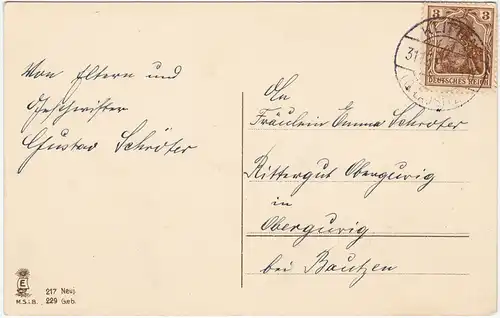 Von Eltern und
Geschwister
Gustav Schröter
An
Fräulein Emma Schröter
Rittergut Obergurig
in
Obergurig
bei Bautzen
3
DEUTSCHES REICH
31.
E
M.S.i.B.
217 Neuj.
229 Geb.